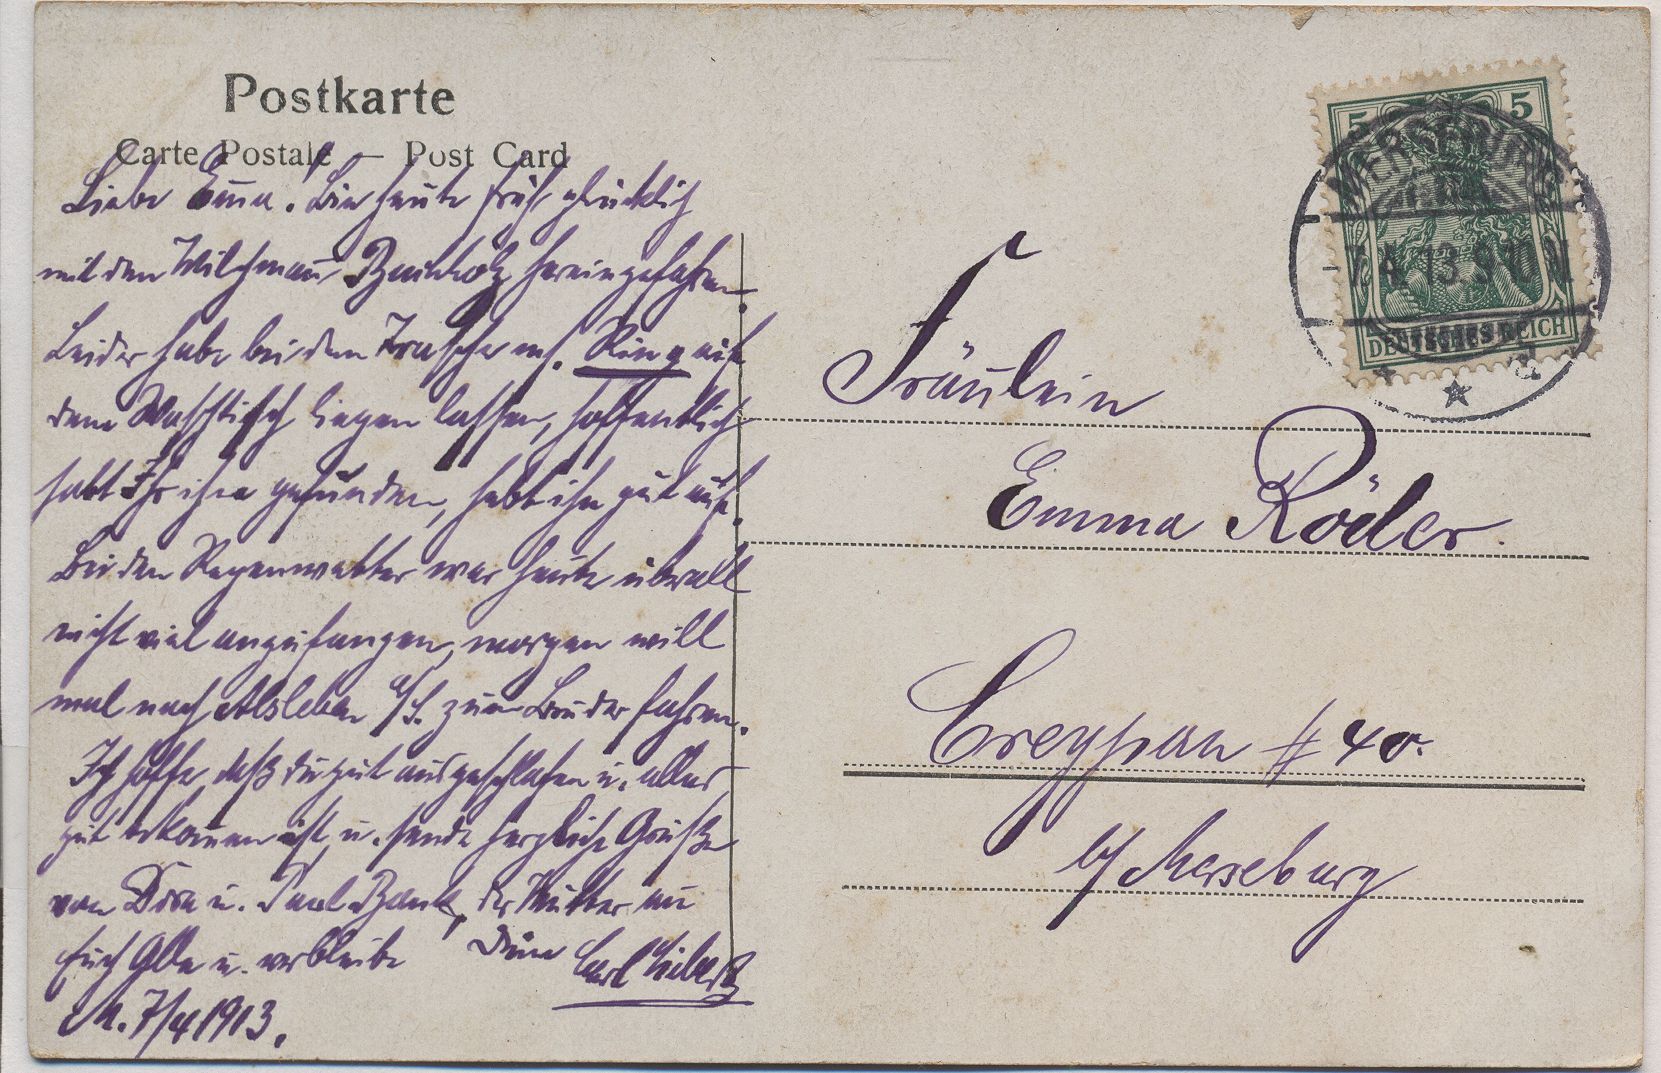 Postkarte
Carte Postale — Post Card
Liebe Emma. Bin heute früh glücklich
mit den Milchmann hereingefahren.
Leider habe bei dem m. Ring auf
dem Waschtisch liegen lassen, hoffentlich
habt Ihr ihn gefunden, hebt ihn gut auf.
Bei den Regenwetter war heute überall
nicht viel anzufangen, morgen will
mal nach Alsleben a/S. zum Bruder fahren.
Ich hoffe, daß du gut ausgeschlafen u. alles
gut bekommen ist, u. sende herzliche Grüße
von u. Paul der Mutter an
Euch Alle u. verbleibe Dein Carl
M. 7/4 1913.
5 5
MERSEBURG
7.4.13.9-10N
DEUTSCHES REICH
Fräulein
Emma Röder.
Creypau # 40.
b/ Merseburg